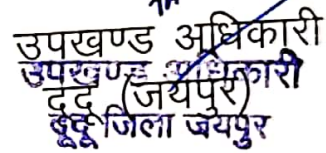 उपखण्ड अधिकारी
उपखण्ड अधिकारी
दूदू (जयपुर)
दूदू जिला जयपुर